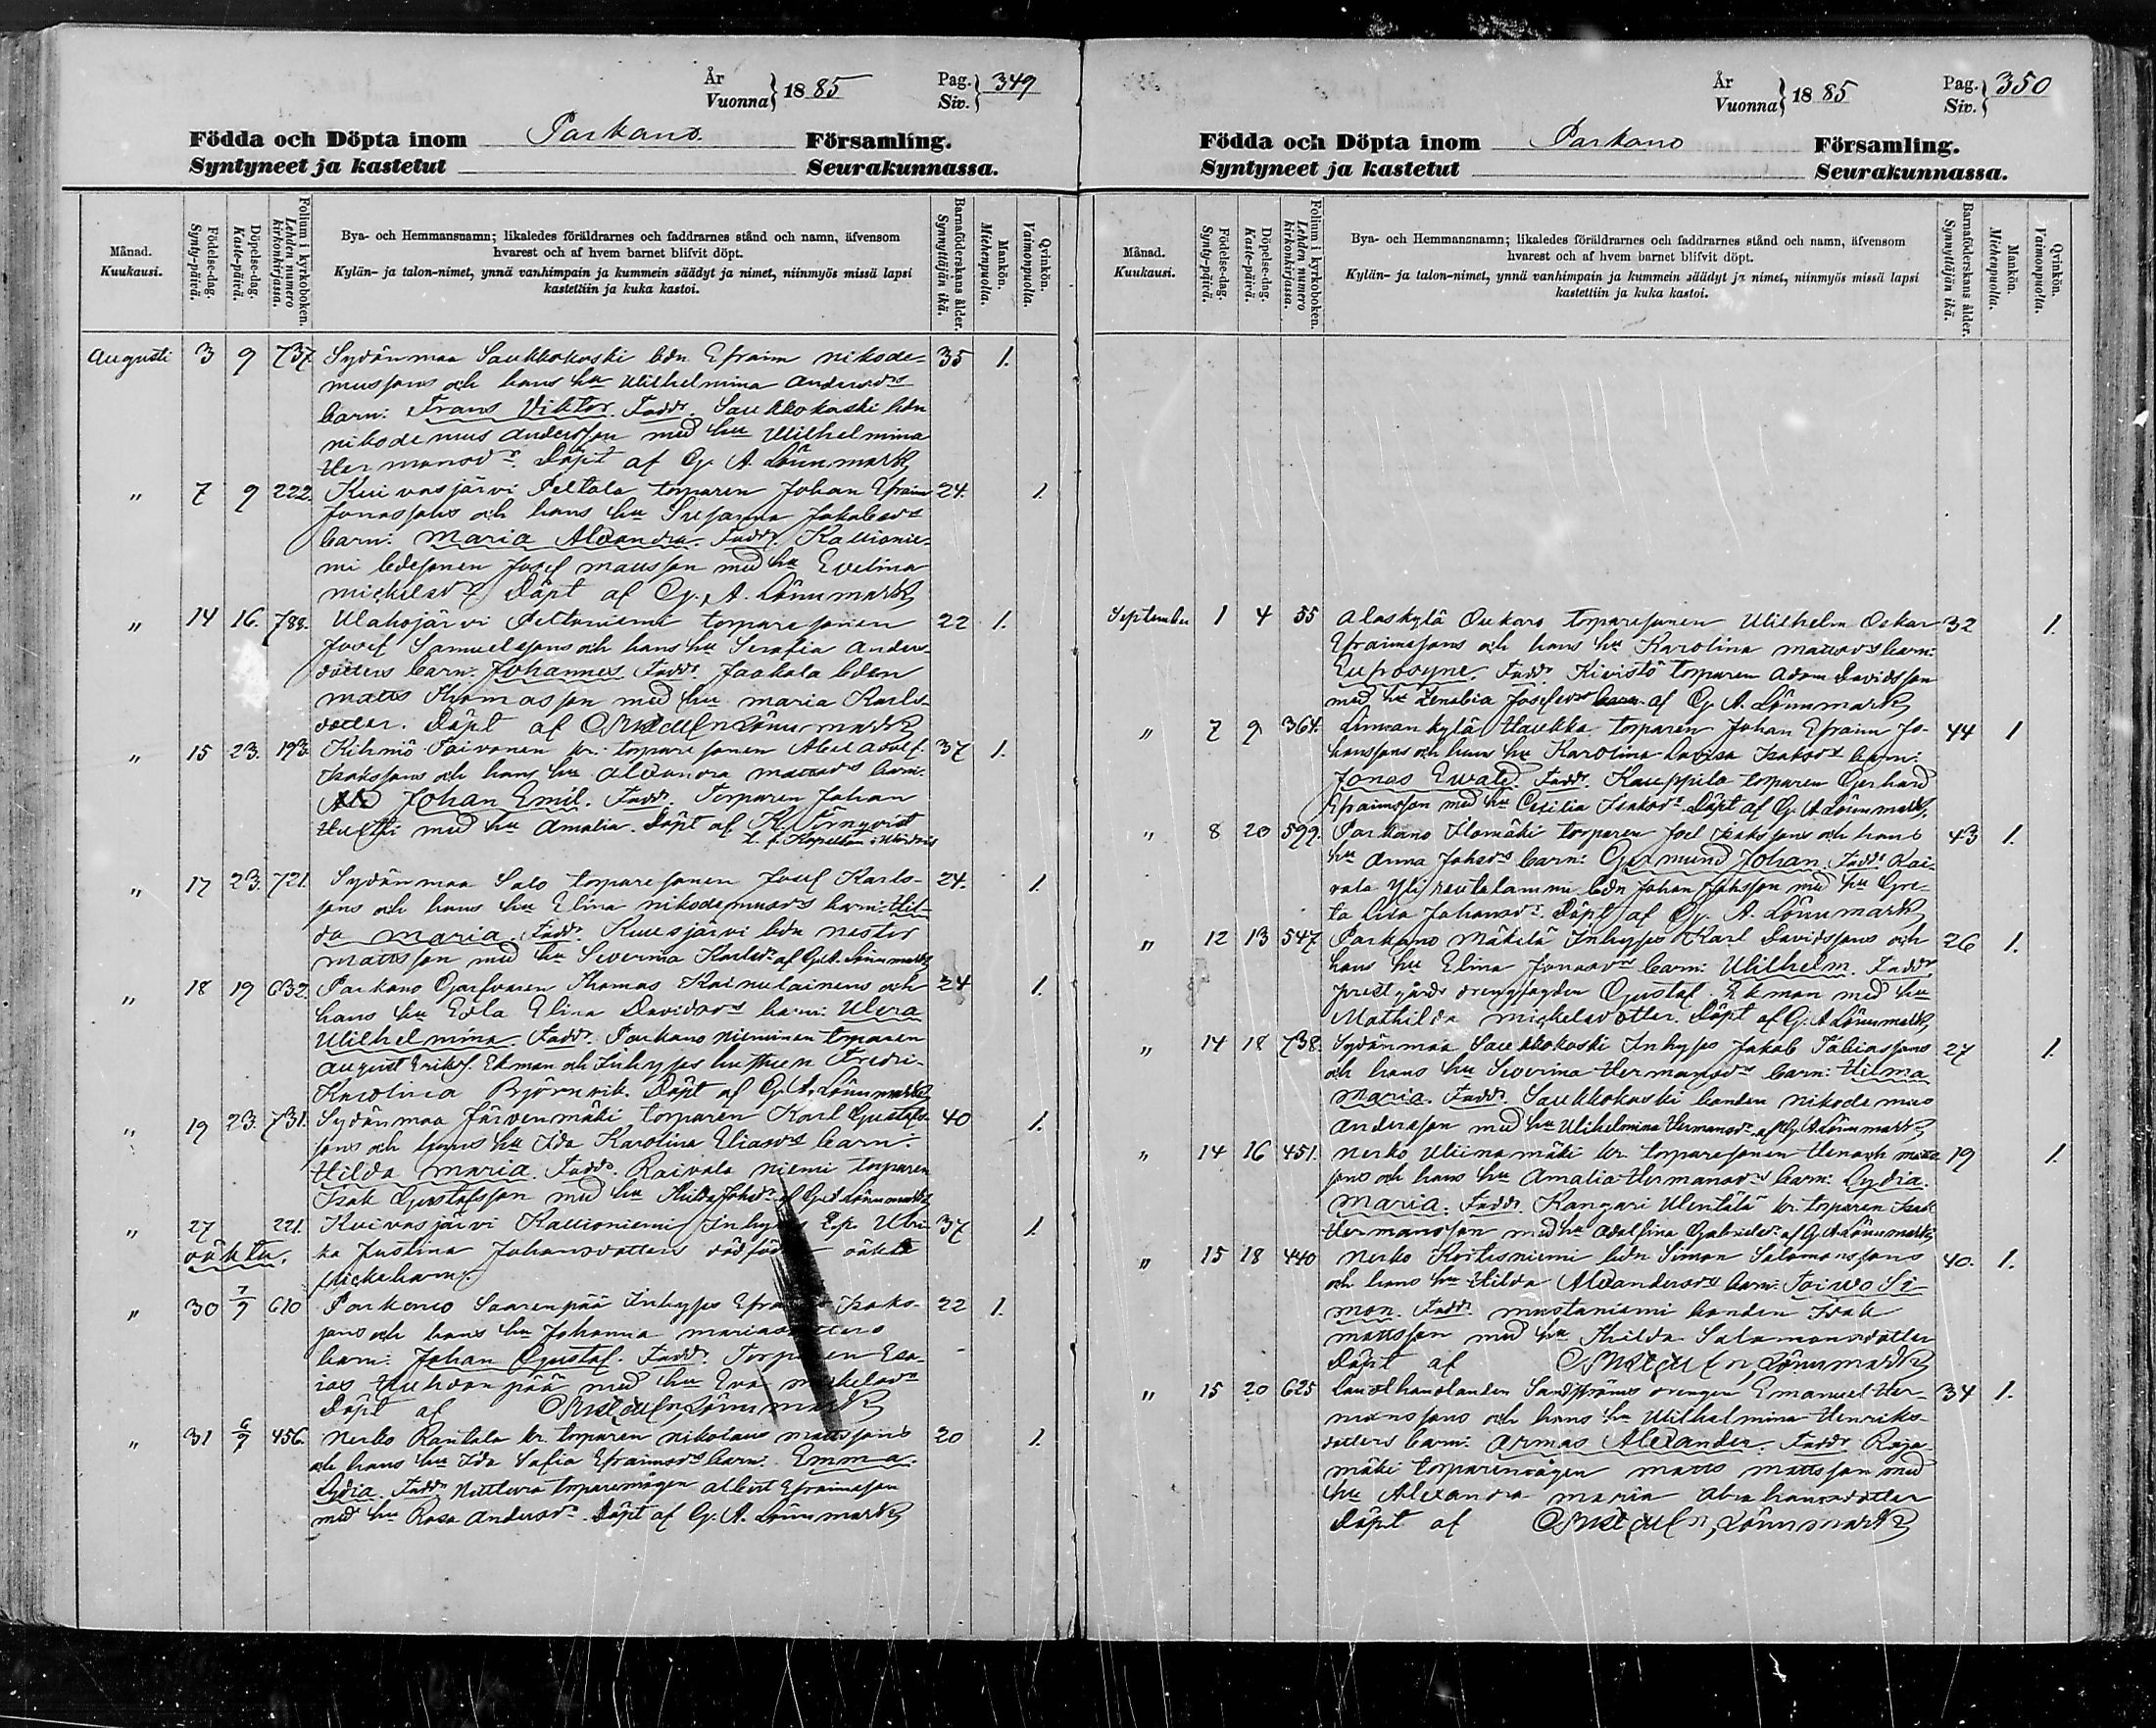 År
Vuonna } 1885 Pag.
Siv. } 349
Födda och Döpta inom Parkano. Församling.
Syntyneet ja kastetut Seurakunnassa.
Månad.
Kuukausi.
Födelse-dag.
Synty-päivä.
Döpelse-dag.
Kaste-päivä.
Folium i kyrkoboken.
Lehden numero kirkonkirjassa.
Bya- och Hemmansnamn; likaledes föräldrarnes och faddrarnes stånd och namn, äfvensom
hvarest och af hvem barnet blifvit döpt.
Kylän- ja talon-nimet, ynnä vanhimpain ja kummein säädyt ja nimet, niinmyös missä lapsi
kastettiin ja kuka kastoi.
Barnaföderskans ålder.
Synnyttäjän ikä.
Mankön.
Miehenpuolta.
Qvinkön.
Vaimonpuolta.
Augusti 3 9 737. Sydänmaa Saukkokoski bdn Efraim Nikode- 35 1.
mussons och hans hu Wilhelmina Andersdrs
barn: Frans Viktor. Faddr. Saukkokoski bdn
Nikodemus Andersson med hu Wilhelmina
Hermansdr. Döpt af G. A. Lönnmark
" 7 9 222. Kuivasjärvi Peltola torparen Johan Efraim 24. 1.
Jonassons och hans hu Susanna Jakobsdrs
barn: Maria Alexandra. Faddr. Kallionie-
mi bdesonen Josef Mattsson med hu Evelina
Michelsdr Döpt af G. A. Lönnmark
" 14 16. 788. Wahojärvi Peltoniemi torparesonen 22 1.
Josef Samuelssons och hans hu Serafia Anders-
dotters barn: Johannes Faddr. Jaakola bdon
Matts Thomasson med hu Maria Karls-
dotter. Döpt af Lönnmark
" 15 23. 193. Kihniö Toivonen kr. torparesonen Abel Adolf 37 1.
Isakssons och hans hu Alexandra Mattsdrs barn:
Johan Emil. Faddr. Torparen Johan
med hu Amalia. Döpt af K. Törnqvist
" 17 23. 721. Sydänmaa Salo torparesonen Josef Karls- 24. 1.
sons och hans hu Elina Nikodemusdrs barn: Hil-
da Maria. Faddr. Kuusjärvi bdn Nestor
Mattsson med hu Severina Karlsdr. af G.A. Lönnmark
" 18 19 632. Parkano Garfvaren Thomas Kainulainens och 24 1.
hans hu Edla Elina Davidsdrs barn: Wera
Wilhelmina. Faddr. Parkano Nieminen torparen
August Eriks. Ekman och Inhyses hustrun Fredri-
Karolina Björnvik. Döpt af G. A. Lönnmark
" 19 23. 731. Sydänmaa Järvenmäki torparen Karl Gustafs- 40 1.
sons och hans hu Ida Karolina Eliasdrs barn:
Hilda Maria. Faddr. Raivala Niemi torparen
Isak Gustafsson med hu Hilda Johsdr. af G.A. Lönnmark
" 27 221. Kuivasjärvi Kallioniemi Inhyses E.p. Ulri- 37 1.
oäkta. ka Justina Johansdotters dödfödda oäkta
flickebarn.
" 30 7/9 610 Parkano Saarenpää Inhyses Efraim Isaks- 22 1.
sons och hans hu Johanna Mariasdotters
barn: Johan Gustaf. Faddr. Torparen Esa-
ias med hu Eva Michelsdr
Döpt af Lönnmark
" 31 6/9 456. Nerko Rantala kr. torparen Nikolaus Mattssons 20 1.
och hans hu Ida Sofia Efraimsdrs barn: Emma
Lydia. Faddr. torparemågen Albert Efraimsson
med hu Rosa Andersdr. Döpt af G. A. Lönnmark
År
Vuonna } 1885 Pag.
Siv. } 350
Födda och Döpta inom Parkano Församling.
Syntyneet ja kastetut Seurakunnassa.
Månad.
Kuukausi.
Födelse-dag.
Synty-päivä.
Döpelse-dag.
Kaste-päivä.
Folium i kyrkoboken.
Lehden numero kirkonkirjassa.
Bya- och Hemmansnamn; likaledes föräldrarnes och faddrarnes stånd och namn, äfvensom
hvarest och af hvem barnet blifvit döpt.
Kylän- ja talon-nimet, ynnä vanhimpain ja kummein säädyt ja nimet, niinmyös missä lapsi
kastettiin ja kuka kastoi.
Barnaföderskans ålder.
Synnyttäjän ikä.
Mankön.
Miehenpuolta.
Qvinkön.
Vaimonpuolta.
September 1 4 55 Alaskylä Oukaro torparesonen Wilhelm Oskar 32 1.
Efraimssons och hans hu Karolina Mattsdrs barn:
Eufrosyne. Faddr Kivistö torparen Adam Davidsson
med hu Zenobia Josefsdr af G. A. Lönnmark
" 7 9 364. Linnankylä Haukka torparen Johan Efraim Jo- 44 1
hanssons och hans hu Karolina Lovisa Isaksdrs barn:
Jonas Ewald. Faddr. Kauppila torparen Gerhard
Efraimsson med hu Cecilia Isaksdr. Döpt af G. A. Lönnmark.
" 8 20 599. Parkano Ilomäki torparen Joel Isakssons och hans 43 1.
hu Anna Johsdrs barn: Germund Johan. Faddr Rai-
vala Ylirautalammi bdn Johan Johsson med hu Gre-
ta Lisa Johansdr. Döpt af G. A. Lönnmark
" 12 13 547. Parkano Mäkelä Inhyses Karl Davidssons och 26 1.
hans hu Elina Jonasdrs barn: Wilhelm. Faddr
prestgårds drengfogden Gustaf Ekman med hu
Mathilda Michelsdotter. Döpt af G. A. Lönnmark
" 14 18 738. Sydänmaa Saukkokoski Inhyses Jakob Tobiassons 27 1.
och hans hu Severina Hermansdrs barn: Hilma
Maria. Faddr. Saukkokoski bonden Nikodemus
Andersson med hu Wilhelmina Hermansdr. af G. A. Lönnmark
" 14 16 451. Nerko Wiinamäki kr. torparesonen Henoch Matts- 19 1.
sons och hans hu Amalia Hermansdrs barn: Lydia
Maria. Faddr. Kangari Wentälä kr. torparen Isak
Hermansson med hu Adolfina Gabrielsdr. af G.A. Lönnmark
" 15 18 440 Nerko Koskisniemi bdn Simon Salomonssons 40. 1.
och hans hu Hilda Alexandersdrs barn: Toiwo Si-
mon. Faddr. Mustaniemi bonden Isak
Mattsson med hu Hilda Salomonsdotter
Döpt af Lönnmark
" 15 20 625 Landthandlanden Sandströms drengen Emanuel Her- 34 1.
manssons och hans hu Wilhelmina Henriks-
dotters barn: Armas Alexander. Faddr Raja-
mäki torparemågen Matts Mattsson med
hu Alexandra Maria Abrahamsdotter
Döpt af Lönnmark